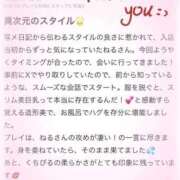 you :)
異次元のスタイル
写メ日記から伝わるスタイルの良さに惹かれて、入店
当初からずっと気になっていたねるさん。今回ようや
くタイミングが合ったので、会いに行ってきました！
事前にXでやり取りしていたので、初めましてだった
けれど、スムーズな会話でスタート。服を脱ぐと、ス
リム美巨乳って本当に存在するんだ！と感動する
くらい造形美で、お風呂でハグを存分に堪能しまし
た。
プレイは、ねるさんの攻めが凄い！の一言に尽きま
す。身を委ねていたら、そのまま果てました
あと、くちびるの柔らかさがとても印象に残っていま
す